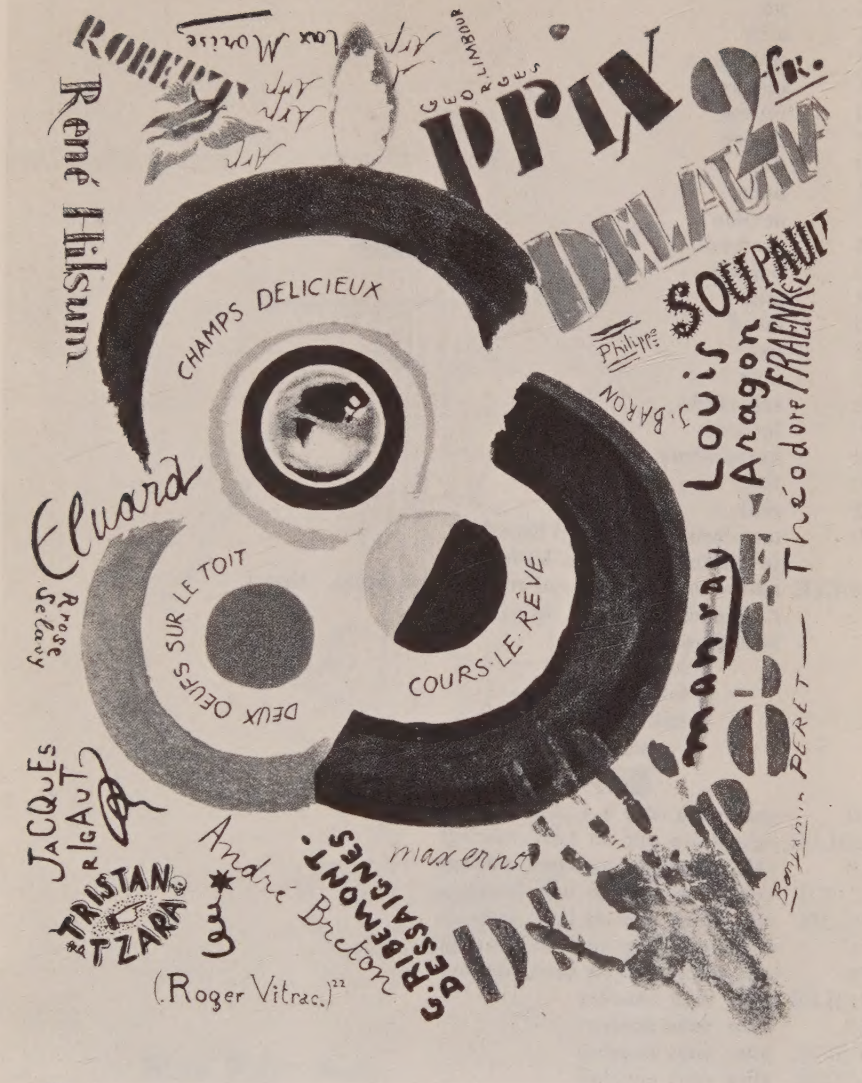 ROBERT
Max Morise
Arp
Arp
Arp
Arp
Arp
GEORGES
LIMBOUR
PRIX 2 fr.
DELAUNAY
René Hilsum
SOUPAULT
Philippe
J. BARON
Louis
Aragon
Théodore FRAENKEL
CHAMPS DELICIEUX
Eluard
Rrose
Selavy
DEUX OEUFS SUR LE TOIT
COURS·LE·RÊVE
man ray
Benjamin PERET
JaCQUEs
RIGAUT
TRISTAN
TZARA
André Breton
G. RIBEMONT.
DESSAIGNES
max ernst
DE
(.Roger Vitrac.)22